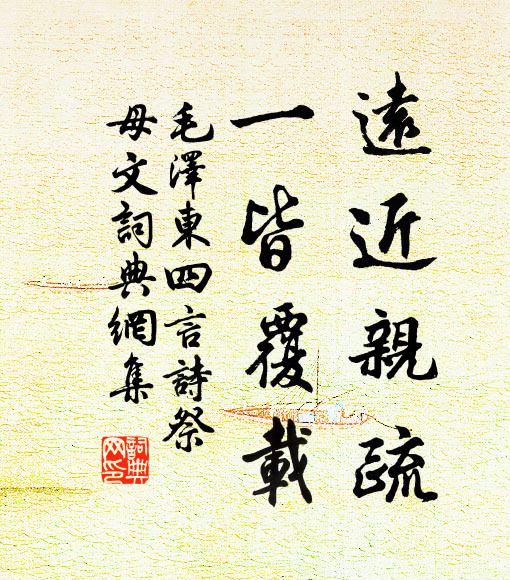 遠近親疏
一皆覆載
毛澤東四言詩祭
母文詞典網集
詞典
网印